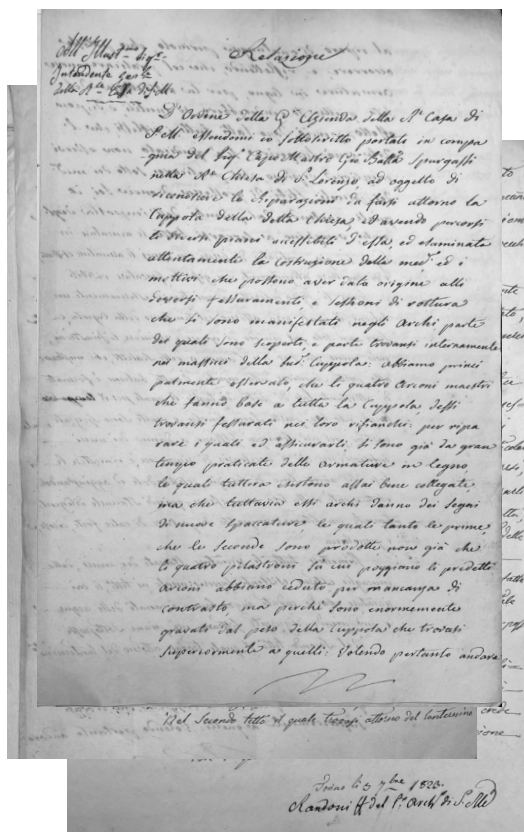 All'Ill.mo Sig.re
Intendente Gen.le
della R.le Casa di S.M.
Relazione
D'Ordine della G.le Azienda della R.le Casa di
S.M. essendomi io sottoscritto portato in compa
gnia del Sig.r Capo Mastro Gio Batta Spurgassi
nella R.le Chiesa di S.n Lorenzo, ad oggetto di
riconoscere le Riparazioni da farsi attorno la
Cuppola della detta Chiesa, ed avendo percorsi
li diversi piani accessibili d'essa, ed esaminata
attentamente la costruzione della med.a ed i
mottivi che possono aver data origine alli
diversi fessuramenti, e sessioni di rottura
che si sono manifestati negli archi parte
dei quali sono scoperti, e parte trovansi internamente
nei massicci della sud.a Cuppola: abbiamo princi
palmente osservato, che li quattro Arconi maestri
che fanno base a tutta la Cuppola stessi
trovansi fessurati nei loro rifianchi: per ripa
rare i quali ed assicurarli, si sono già da gran
tempo praticate delle armature in legno,
le quali tuttora esistono assai bene collegate,
ma che tuttavia essi archi danno dei segni
di nuove spaccature, le quali tanto le prime,
che le seconde sono prodotte non già che
li quattro pilastroni su cui poggiano li predetti
arconi abbiano ceduto per mancanza di
contrasto, ma perchè sono enormemente
gravati dal peso della Cuppola che trovasi
superiormente a quelli: Volendo pertanto andare
Del Secondo tetto il quale trovasi attorno del lanternino
Torino li 3 7bre 1823.
Randoni ff del P.o Arch.o di S. M.